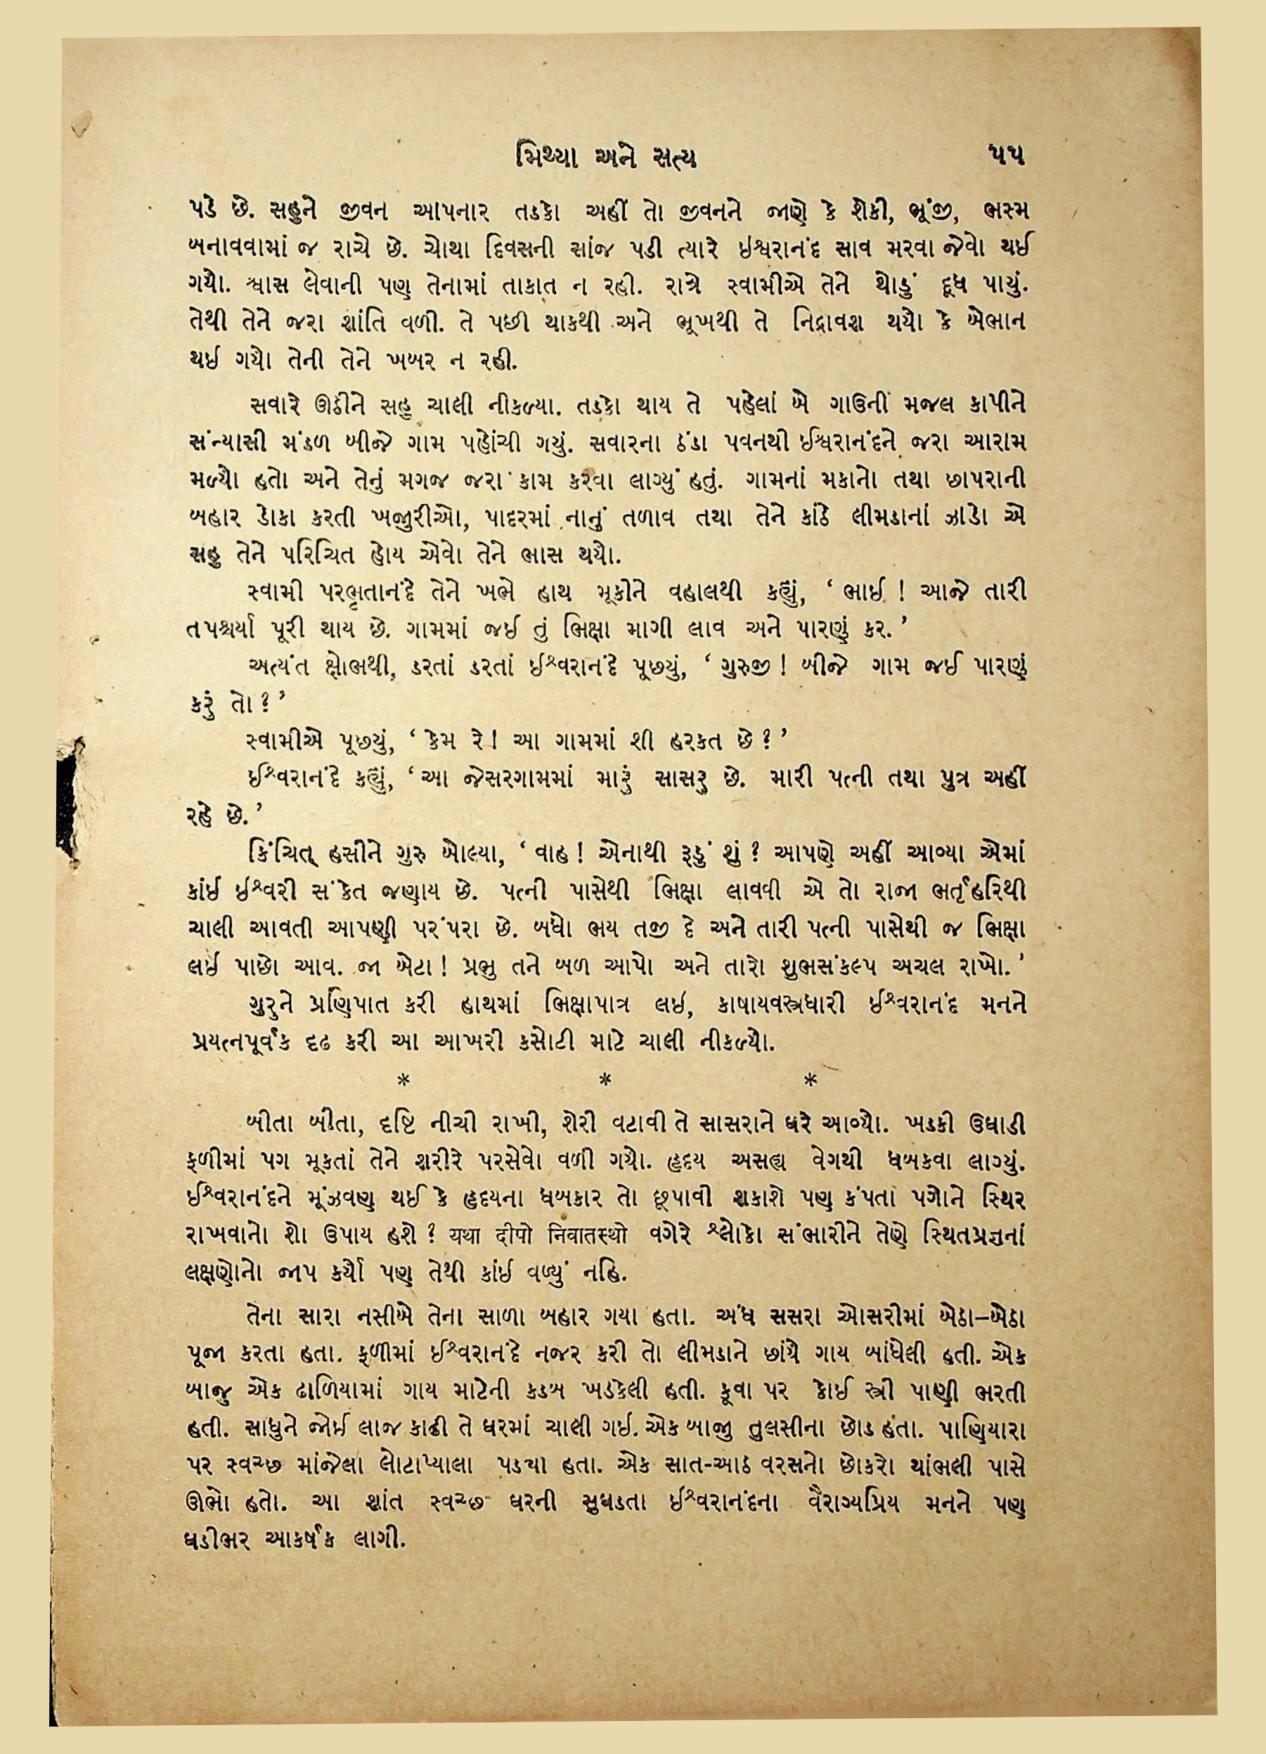 મિથ્યા અને સત્ય ૫૫
પડે છે. સહુને જીવન આપનાર તડકો અહીં તો જીવનને જાણે કે શેકી, ભૂંજી, ભસ્મ
બનાવવામાં જ રાચે છે. ચોથા દિવસની સાંજ પડી ત્યારે ઇશ્વરાનંદ સાવ મરવા જેવો થઈ
ગયો. શ્વાસ લેવાની પણ તેનામાં તાકાત ન રહી. રાત્રે સ્વામીએ તેને થોડું દૂધ પાયું.
તેથી તેને જરા શાંતિ વળી. તે પછી થાકથી અને ભૂખથી તે નિદ્રાવશ થયો કે બેભાન
થઇ ગયો તેની તેને ખબર ન રહી.
સવારે ઊઠીને સહુ ચાલી નીકળ્યા. તડકો થાય તે પહેલાં બે ગાઉની મજલ કાપીને
સંન્યાસી મંડળ બીજે ગામ પહોંચી ગયું. સવારના ઠંડા પવનથી ઈશ્વરાનંદને જરા આરામ
મળ્યો હતો અને તેનું મગજ જરા કામ કરવા લાગ્યું હતું. ગામનાં મકાનો તથા છાપરાની
બહાર ડોકા કરતી ખજુરીઓ, પાદરમાં નાનું તળાવ તથા તેને કાંઠે લીમડાનાં ઝાડો એ
સહુ તેને પરિચિત હોય એવો તેને ભાસ થયો.
સ્વામી પરભૃતાનંદે તેને ખભે હાથ મૂકીને વહાલથી કહ્યું, ‘ ભાઇ ! આજે તારી
તપશ્ચર્યા પૂરી થાય છે. ગામમાં જઇ તું ભિક્ષા માગી લાવ અને પારણું કર. ’
અત્યંત ક્ષોભથી, ડરતાં ડરતાં ઈશ્વરાનંદે પૂછયું, ‘ ગુરુજી ! બીજે ગામ જઈ પારણું
કરું તો ? ’
સ્વામીએ પૂછયું, ‘ કેમ રે ! આ ગામમાં શી હરકત છે ? ’
ઈશ્વરાનંદે કહ્યું, ‘ આ જેસરગામમાં મારું સાસરુ છે. મારી પત્ની તથા પુત્ર અહીં
રહે છે. ’
કિંચિત્ હસીને ગુરુ બોલ્યા, ‘ વાહ ! એનાથી રૂડું શું ? આપણે અહીં આવ્યા એમાં
કાંઇ ઇશ્વરી સંકેત જણાય છે. પત્ની પાસેથી ભિક્ષા લાવવી એ તો રાજા ભર્તૃહરિથી
ચાલી આવતી આપણી પરંપરા છે. બધો ભય તજી દે અને તારી પત્ની પાસેથી જ ભિક્ષા
લઇ પાછો આવ. જા બેટા ! પ્રભુ તને બળ આપો અને તારો શુભસંકલ્પ અચલ રાખો. ’
ગુરુને પ્રણિપાત કરી હાથમાં ભિક્ષાપાત્ર લઇ, કાષાયવસ્ત્રધારી ઈશ્વરાનંદ મનને
પ્રયત્નપૂર્વક દૃઢ કરી આ આખરી કસોટી માટે ચાલી નીકળ્યો.
* * *
બીતા બીતા, દૃષ્ટિ નીચી રાખી, શેરી વટાવી તે સાસરાને ઘરે આવ્યો. ખડકી ઉઘાડી
ફળીમાં પગ મૂકતાં તેને શરીરે પરસેવો વળી ગયો. હૃદય અસહ્ય વેગથી ધબકવા લાગ્યું.
ઈશ્વરાનંદને મૂંઝવણ થઈ કે હૃદયના ધબકાર તો છૂપાવી શકાશે પણ કંપતા પગોને સ્થિર
રાખવાનો શો ઉપાય હશે ? यथा दीपो निवातस्थो વગેરે શ્લોકો સંભારીને તેણે સ્થિતપ્રજ્ઞનાં
લક્ષણોનો જાપ કર્યો પણ તેથી કાંઇ વળ્યું નહિ.
તેના સારા નસીબે તેના સાળા બહાર ગયા હતા. અંધ સસરા ઓસરીમાં બેઠા–બેઠા
પૂજા કરતા હતા. ફળીમાં ઈશ્વરાનંદે નજર કરી તો લીમડાને છાંયે ગાય બાંધેલી હતી. એક
બાજુ એક ઢાળિયામાં ગાય માટેની કડબ ખડકેલી હતી. કૂવા પર કોઈ સ્ત્રી પાણી ભરતી
હતી. સાધુને જોઈ લાજ કાઢી તે ઘરમાં ચાલી ગઈ. એક બાજુ તુલસીના છોડ હતા. પાણિયારા
પર સ્વચ્છ માંજેલા લોટાપ્યાલા પડયા હતા. એક સાત-આઠ વરસનો છોકરો થાંભલી પાસે
ઊભો હતો. આ શાંત સ્વચ્છ ઘરની સુઘડતા ઈશ્વરાનંદના વૈરાગ્યપ્રિય મનને પણ
ઘડીભર આકર્ષક લાગી.